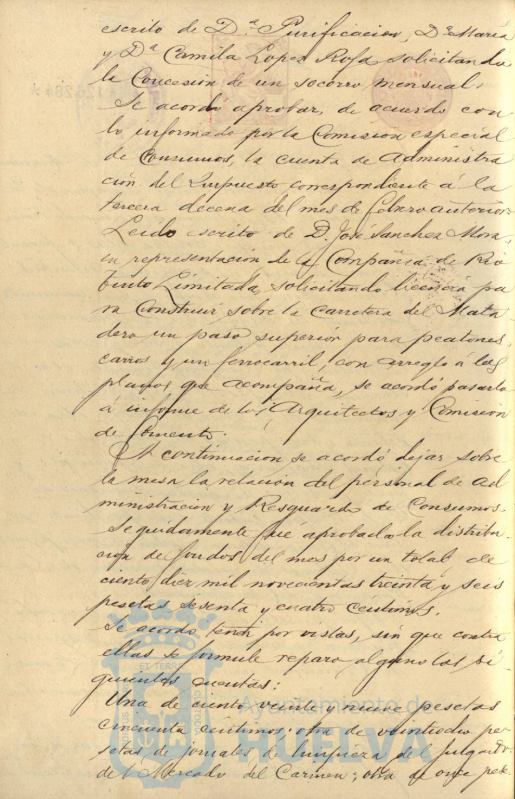 escrito de D.ª Purificacion, D.ª María
y D.ª Camila Lopez Rofa solicitando
la Concesión de un socorro mensual.
Se acordó aprobar, de acuerdo con
lo informado por la Comisión especial
de Consumos, la cuenta de Administra
ción del Impuesto correspondiente á la
tercera decena del mes de febrero anterior.
Leido escrito de D. José Sanchez Mora
en representación de la Compañia de Rio
tinto Limitada, solicitando licencia pa
ra Construir sobre la carretera del Mata
dero un paso superior para peatones,
carros y un ferrocarril, con arreglo á los
planos que acompaña, se acordó pasarlo
á informe de los Arquitectos y Comisión
de fomento.
A continuación se acordó dejar sobre
la mesa la relación del personal de Ad
ministración y Resguardo de Consumos.
Seguidamente fué aprobada la distribu
ción de fondos del mes por un total de
ciento diez mil novecientas treinta y seis
pesetas, sesenta y cuatro céntimos.
Se acordó tener por vistas, sin que contra
ellas se formule reparo alguno las si
guientes cuentas:
Una de ciento veinte y nueve pesetas
cincuenta céntimos; otra de veintiocho pe
setas de jornales de limpieza del juzgado
del Mercado del Carmen; otra de once pese
Ayuntamiento de
HUELVA